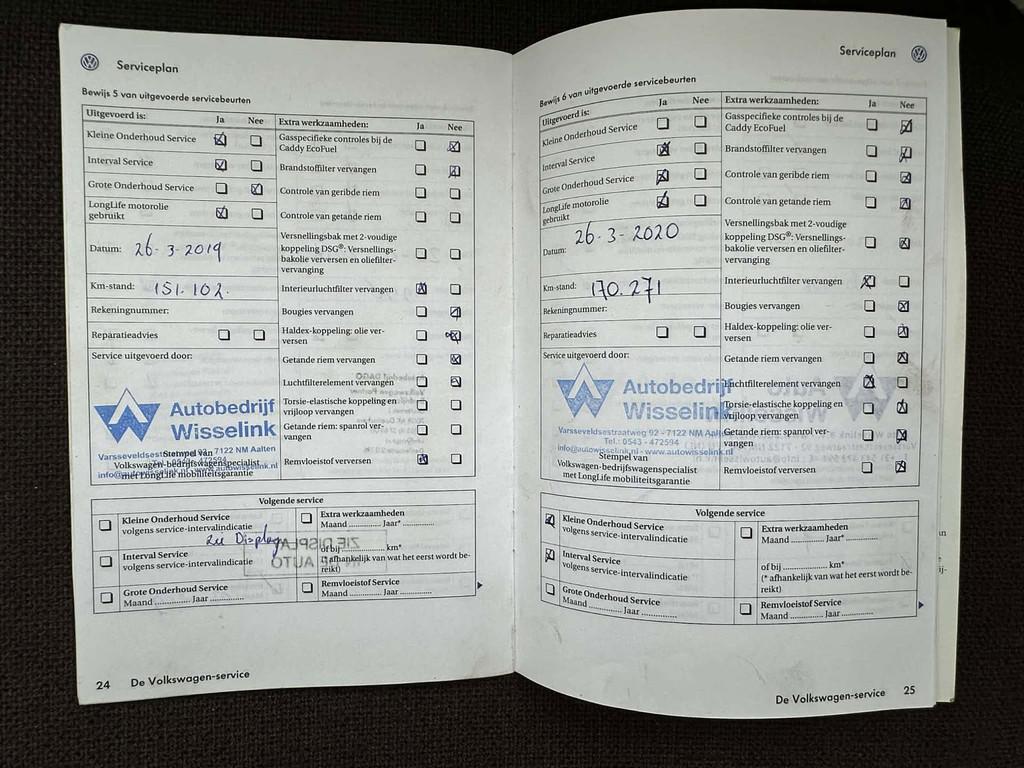 Serviceplan
Bewijs 5 van uitgevoerde servicebeurten
Uitgevoerd is: Ja Nee
Kleine Onderhoud Service
Interval Service
Grote Onderhoud Service
LongLife motorolie
gebruikt
Datum: 26-3-2019
Km-stand: 151.102.
Rekeningnummer:
Reparatieadvies
Service uitgevoerd door:
Autobedrijf
Wisselink
Varsseveldsestraatweg 92 - 7122 NM Aalten
Stempel van
Volkswagen-bedrijfswagenspecialist
info@autowisselink.nl - www.autowisselink.nl
met LongLife mobiliteitsgarantie
Extra werkzaamheden: Ja Nee
Gasspecifieke controles bij de
Caddy EcoFuel
Brandstoffilter vervangen
Controle van geribde riem
Controle van getande riem
Versnellingsbak met 2-voudige
koppeling DSG®: Versnellings-
bakolie verversen en oliefilter-
vervanging
Interieurluchtfilter vervangen
Bougies vervangen
Haldex-koppeling: olie ver-
versen
Getande riem vervangen
Luchtfilterelement vervangen
Torsie-elastische koppeling en
vrijloop vervangen
Getande riem: spanrol ver-
vangen
Remvloeistof verversen
Volgende service
Kleine Onderhoud Service
volgens service-intervalindicatie
Zie Display
Interval Service
volgens service-intervalindicatie
Grote Onderhoud Service
Maand ............. Jaar ..............
Extra werkzaamheden
Maand ............. Jaar* .............
of bij ................. km*
(* afhankelijk van wat het eerst wordt be-
reikt)
Remvloeistof Service
Maand ............. Jaar .............
24 De Volkswagen-service
Serviceplan
Bewijs 6 van uitgevoerde servicebeurten
Uitgevoerd is: Ja Nee
Kleine Onderhoud Service
Interval Service
Grote Onderhoud Service
LongLife motorolie
gebruikt
Datum: 26-3-2020
Km-stand: 170.271
Rekeningnummer:
Reparatieadvies
Service uitgevoerd door:
Autobedrijf
Wisselink
Varsseveldsestraatweg 92 - 7122 NM Aalten
Tel.: 0543 - 472594
info@autowisselink.nl - www.autowisselink.nl
Stempel van
Volkswagen-bedrijfswagenspecialist
met LongLife mobiliteitsgarantie
Extra werkzaamheden: Ja Nee
Gasspecifieke controles bij de
Caddy EcoFuel
Brandstoffilter vervangen
Controle van geribde riem
Controle van getande riem
Versnellingsbak met 2-voudige
koppeling DSG®: Versnellings-
bakolie verversen en oliefilter-
vervanging
Interieurluchtfilter vervangen
Bougies vervangen
Haldex-koppeling: olie ver-
versen
Getande riem vervangen
Luchtfilterelement vervangen
Torsie-elastische koppeling en
vrijloop vervangen
Getande riem: spanrol ver-
vangen
Remvloeistof verversen
Volgende service
Kleine Onderhoud Service
volgens service-intervalindicatie
Interval Service
volgens service-intervalindicatie
Grote Onderhoud Service
Maand ............. Jaar ..............
Extra werkzaamheden
Maand ............. Jaar* .............
of bij ................. km*
(* afhankelijk van wat het eerst wordt be-
reikt)
Remvloeistof Service
Maand ............. Jaar .............
De Volkswagen-service 25